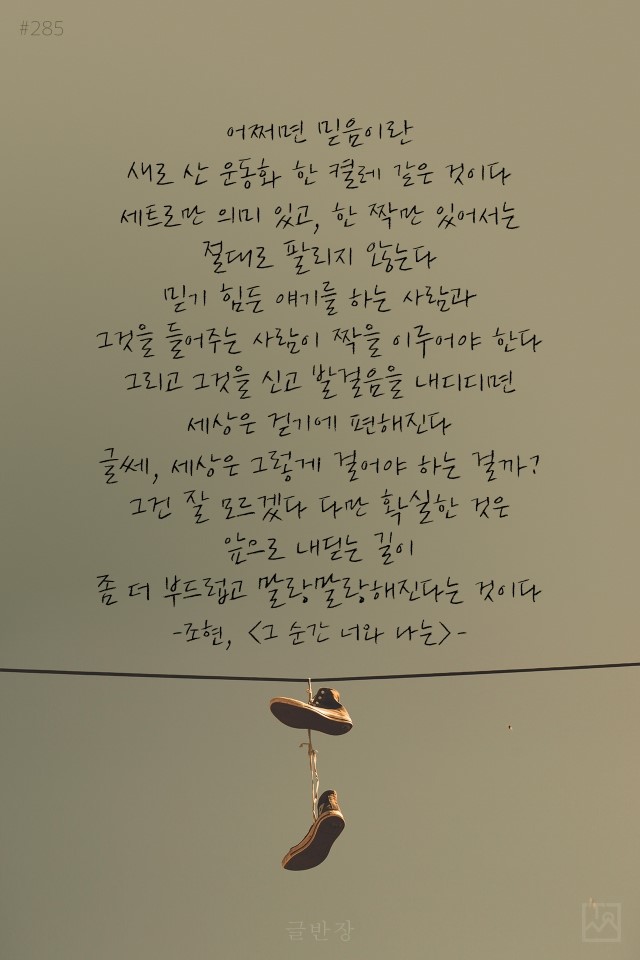 #285
어쩌면 믿음이란
새로 산 운동화 한 켤레 같은 것이다
세트로만 의미 있고, 한 짝만 있어서는
절대로 팔리지 않는다
믿기 힘든 얘기를 하는 사람과
그것을 들어주는 사람이 짝을 이루어야 한다
그리고 그것을 신고 발걸음을 내디디면
세상은 걷기에 편해진다
글쎄, 세상은 그렇게 걸어야 하는 걸까?
그건 잘 모르겠다 다만 확실한 것은
앞으로 내딛는 길이
좀 더 부드럽고 말랑말랑해진다는 것이다
-조현, <그 순간 너와 나는>-
글반장